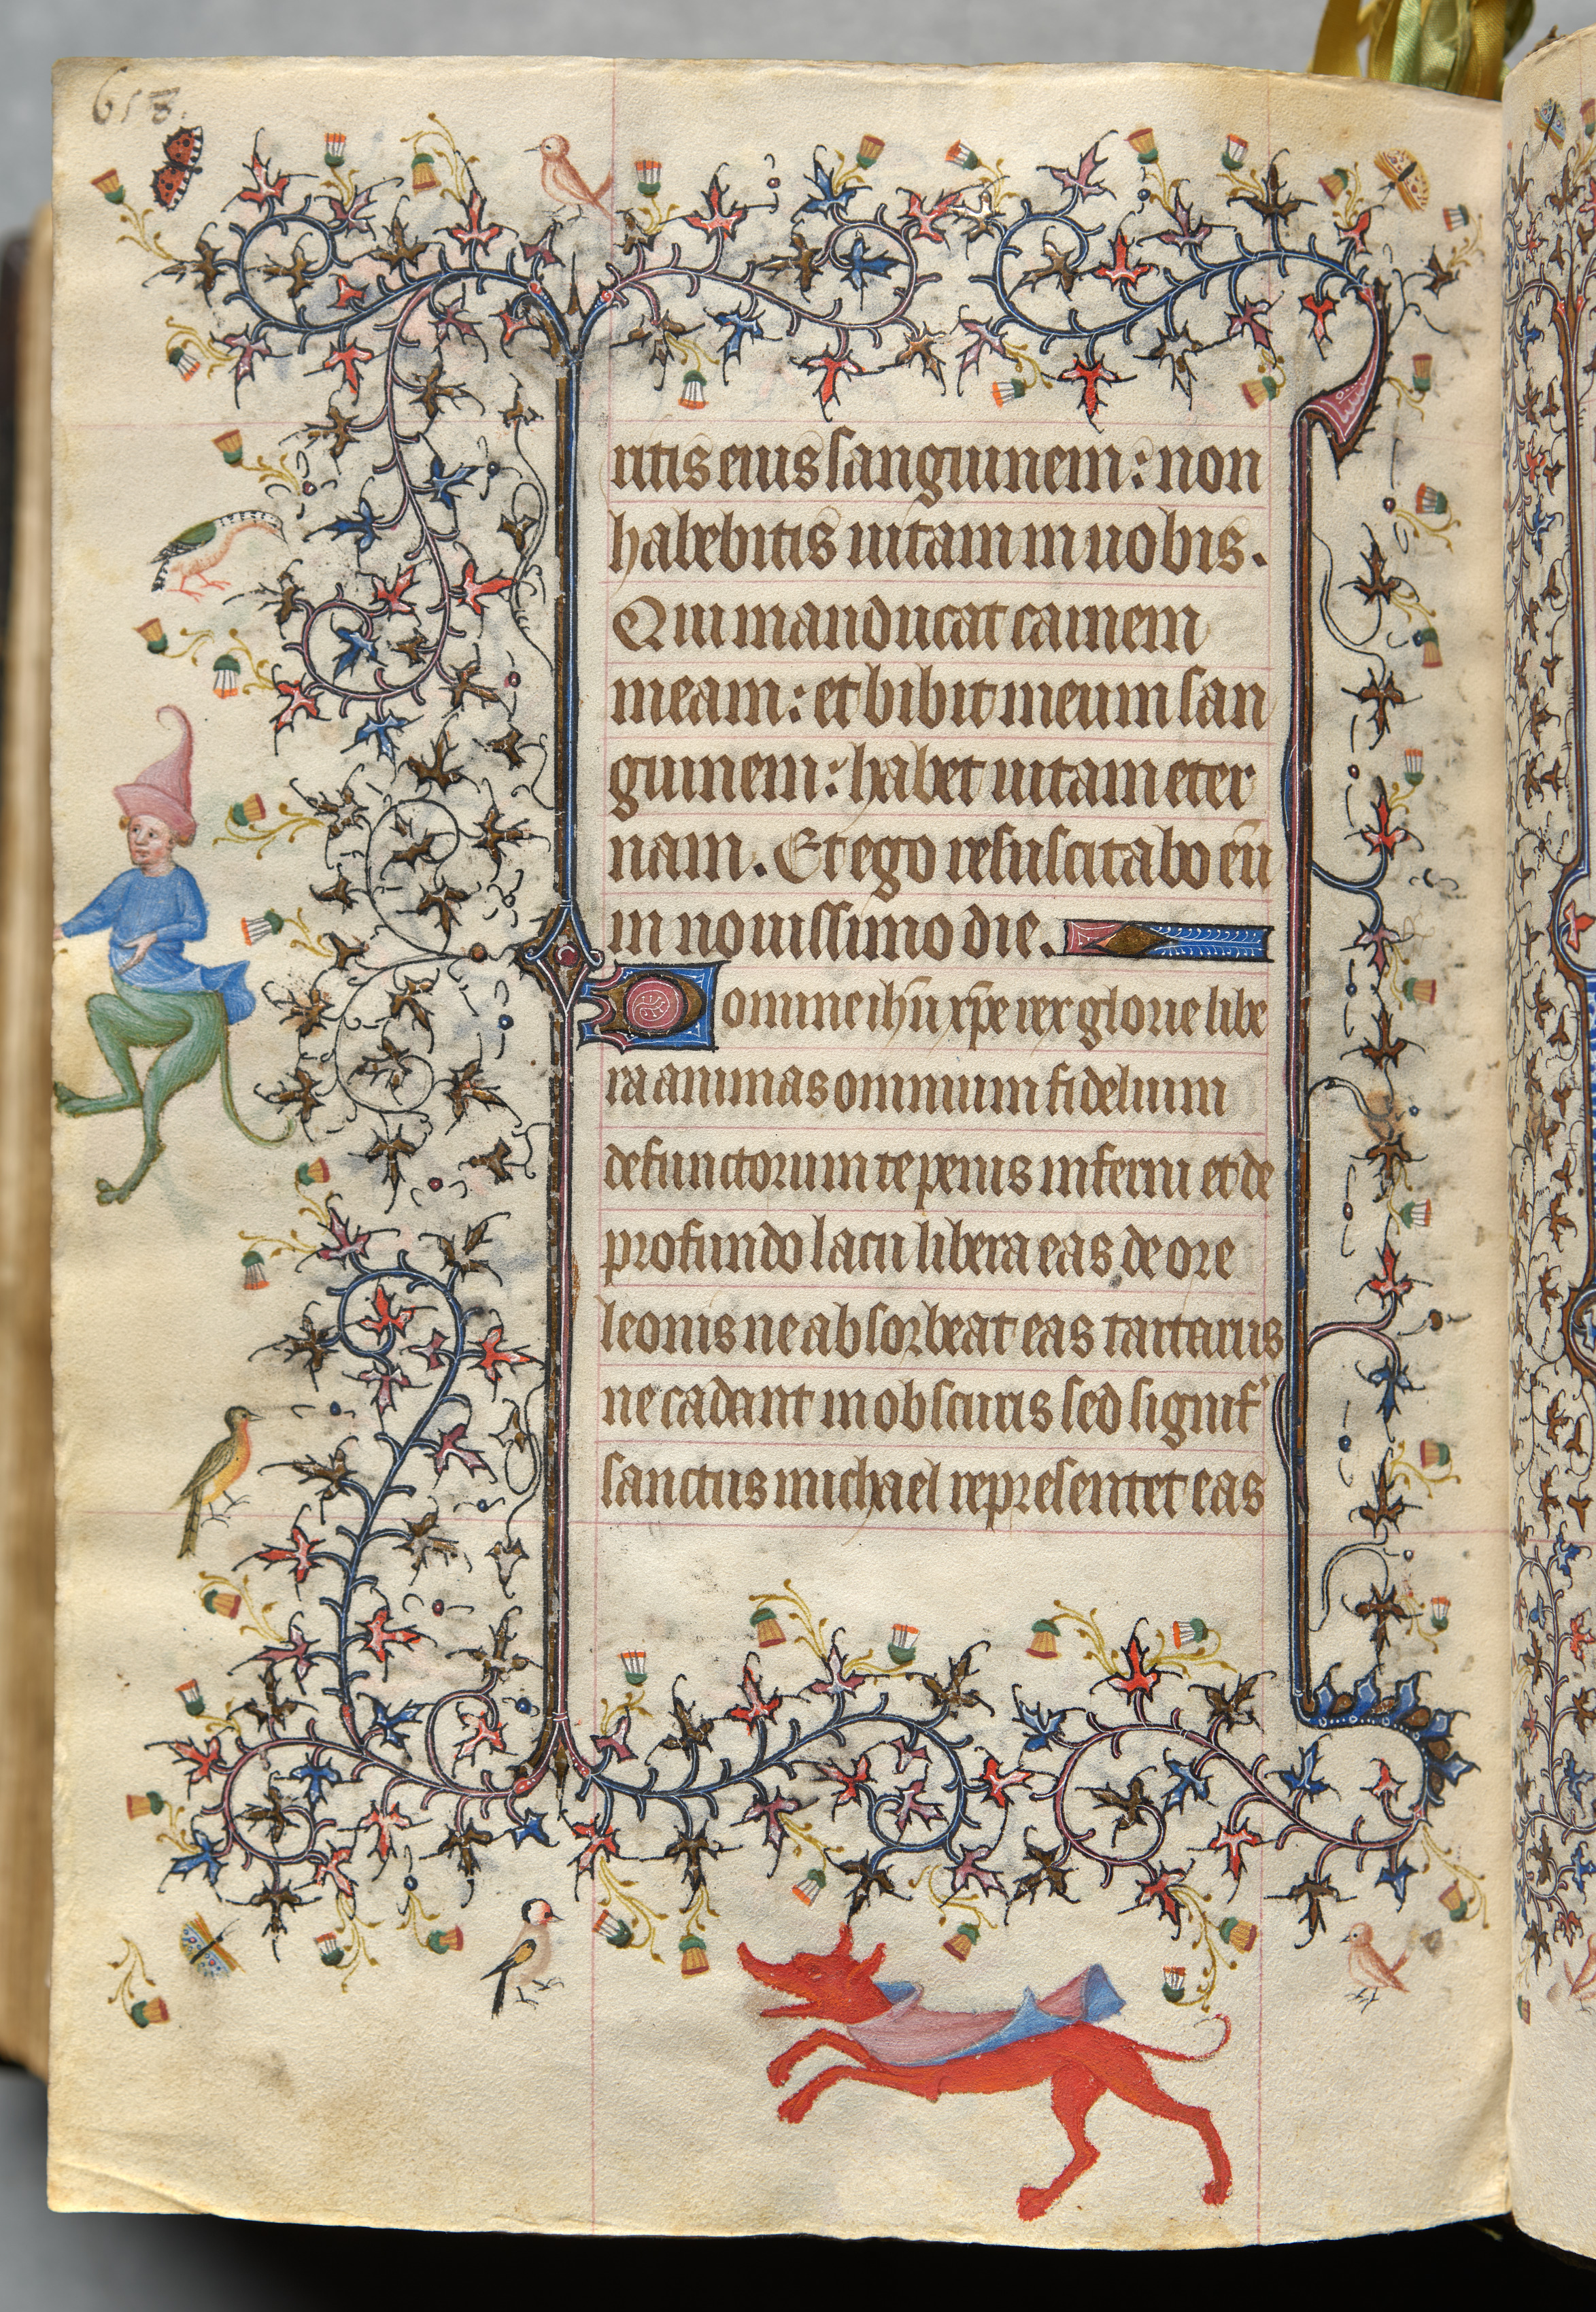 618.
ritis eius sanguinem: non
habebitis uitam in uobis.
Qui manducat carnem
meam: et bibit meum san
guinem: habet uitam eter
nam. Et ego resuscitabo eū
in nouissimo die.
Domine ihū xp̄e rex glorie libe
ra animas omnium fidelium
defunctorum de penis inferni et de
profundo lacu libera eas de ore
leonis ne absorbeat eas tartarus
ne cadant in obscuris sed signif'
sanctus michael representet eas